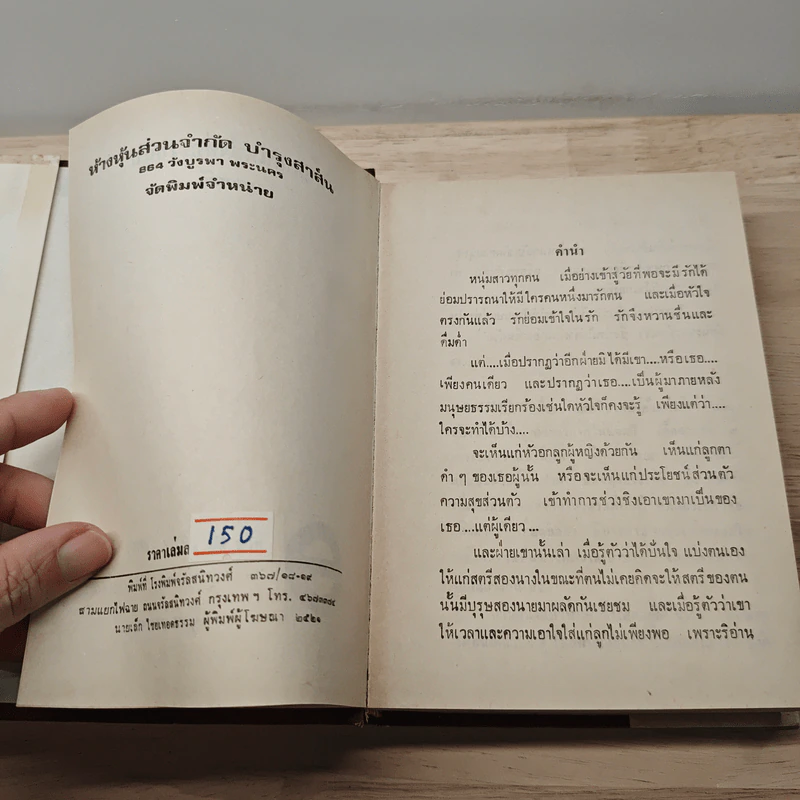 ห้างหุ้นส่วนจำกัด บำรุงสาส์น
๘๘๔ วังบูรพา พระนคร
จัดพิมพ์จำหน่าย
ราคาเล่มล 150
พิมพ์ที่ โรงพิมพ์จรัลสนิทวงศ์ ๓๖๗/๑๘-๑๙
สามแยกไฟฉาย ถนนจรัลสนิทวงศ์ กรุงเทพฯ โทร.
นายเล็ก ไชยเทอดธรรม ผู้พิมพ์ผู้โฆษณา ๒๕๒๑
คำนำ
หนุ่มสาวทุกคน เมื่อย่างเข้าสู่วัยที่พอจะมีรักได้
ย่อมปรารถนาให้มีใครคนหนึ่งมารักตน และเมื่อหัวใจ
ตรงกันแล้ว รักย่อมเข้าใจในรัก รักจึงหวานชื่นและ
ดื่มด่ำ
แต่....เมื่อปรากฏว่าอีกฝ่ายมิได้มีเขา....หรือเธอ....
เพียงคนเดียว และปรากฏว่าเธอ....เป็นผู้มาภายหลัง
มนุษยธรรมเรียกร้องเช่นใดหัวใจก็คงจะรู้ เพียงแต่ว่า....
ใครจะทำได้บ้าง....
จะเห็นแก่หัวอกลูกผู้หญิงด้วยกัน เห็นแก่ลูกตา
ดำ ๆ ของเธอผู้นั้น หรือจะเห็นแก่ประโยชน์ส่วนตัว
ความสุขส่วนตัว เข้าทำการช่วงชิงเอาเขามาเป็นของ
เธอ ...แต่ผู้เดียว ...
และฝ่ายเขานั้นเล่า เมื่อรู้ตัวว่าได้บั่นใจ แบ่งตนเอง
ให้แก่สตรีสองนางในขณะที่ตนไม่เคยคิดจะให้สตรีของตน
นั้นมีบุรุษสองนายมาผลัดกันเชยชม และเมื่อรู้ตัวว่าเขา
ให้เวลาและความเอาใจใส่แก่ลูกไม่เพียงพอ เพราะริอ่าน